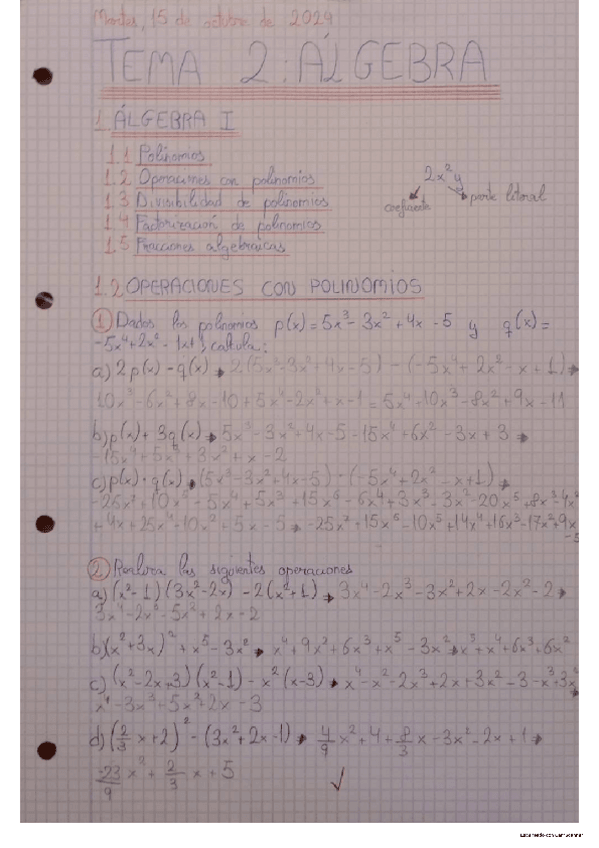 Martes, 15 de octubre de 2024
TEMA 2: ÁLGEBRA
1. ÁLGEBRA I
1.1 Polinomios
1.2 Operaciones con polinomios
1.3 Divisibilidad de polinomios
1.4 Factorización de polinomios
1.5 Fracciones algebraicas
2x²y
coeficiente
parte literal
1.2 OPERACIONES CON POLINOMIOS
① Dados los polinomios p(x) = 5x³ - 3x² + 4x - 5 y q(x) =
-5x⁴ + 2x² - 1x + 1, calcula:
a) 2p(x) - q(x) → 2(5x³ - 3x² + 4x - 5) - (-5x⁴ + 2x² - x + 1) →
10x³ - 6x² + 8x - 10 + 5x⁴ - 2x² + x - 1 = 5x⁴ - 10x³ - 8x² + 9x - 11
b) p(x) + 3q(x) → 5x³ - 3x² + 4x - 5 - 15x⁴ + 6x² - 3x + 3 →
-15x⁴ + 5x³ + 3x² + x - 2
c) p(x) · q(x) → (5x³ - 3x² + 4x - 5) - (-5x⁴ + 2x² - x + 1) →
-25x⁷ + 10x⁵ - 5x⁴ + 5x³ + 15x⁶ - 6x⁴ + 3x³ - 3x² - 20x⁵ + 8x³ - 4x²
+ 4x + 25x⁴ - 10x² + 5x - 5 → -25x⁷ + 15x⁶ - 10x⁵ + 14x⁴ + 16x³ - 17x² + 9x
-5
② Realiza las siguientes operaciones
a) (x² - 1) (3x² - 2x) - 2(x² + 1) → 3x⁴ - 2x³ - 3x² + 2x - 2x² - 2 →
3x⁴ - 2x³ - 5x² + 2x - 2
b) (x² + 3x)² + x⁵ - 3x² → x⁴ + 9x² + 6x³ + x⁵ - 3x² → x⁵ + x⁴ + 6x³ + 6x²
c) (x² - 2x + 3) (x² - 1) - x² (x - 3) → x⁴ - x² - 2x³ + 2x + 3x² - 3 - x³ + 3x²
x⁴ - 3x³ + 5x² + 2x - 3
d) (2/3 x + 2)² - (3x² + 2x - 1) → 4/9 x² + 4 + 8/3 x - 3x² - 2x + 1 →
-23/9 x² + 2/3 x + 5 ✓